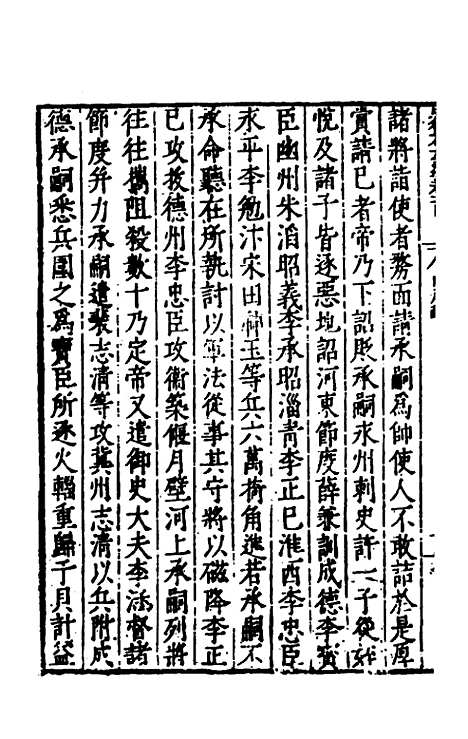 諸將詣使者勞面請承嗣爲帥使人不敢詰於是厚
賞請已者帝乃下詔貶承嗣永州刺史許一子從
悅及諸子皆逐惡地詔河東節度薛兼訓成德李寶
臣幽州朱滔昭義李承昭淄青李正已淮西李忠臣
永平李勉汴宋田神玉等兵六萬掎角進若承嗣不
承命聽在所執討以軍法從事其守將以磁降李正
已攻拔德州李忠臣攻衛築偃月壁河上承嗣列將
往往攜阻殺數十乃定帝又遣御史大夫李涵督諸
節度并力承嗣遣裴志清等攻冀州志清以兵附成
德承嗣悉兵圍之爲寶臣所逐火輜重歸于貝計益